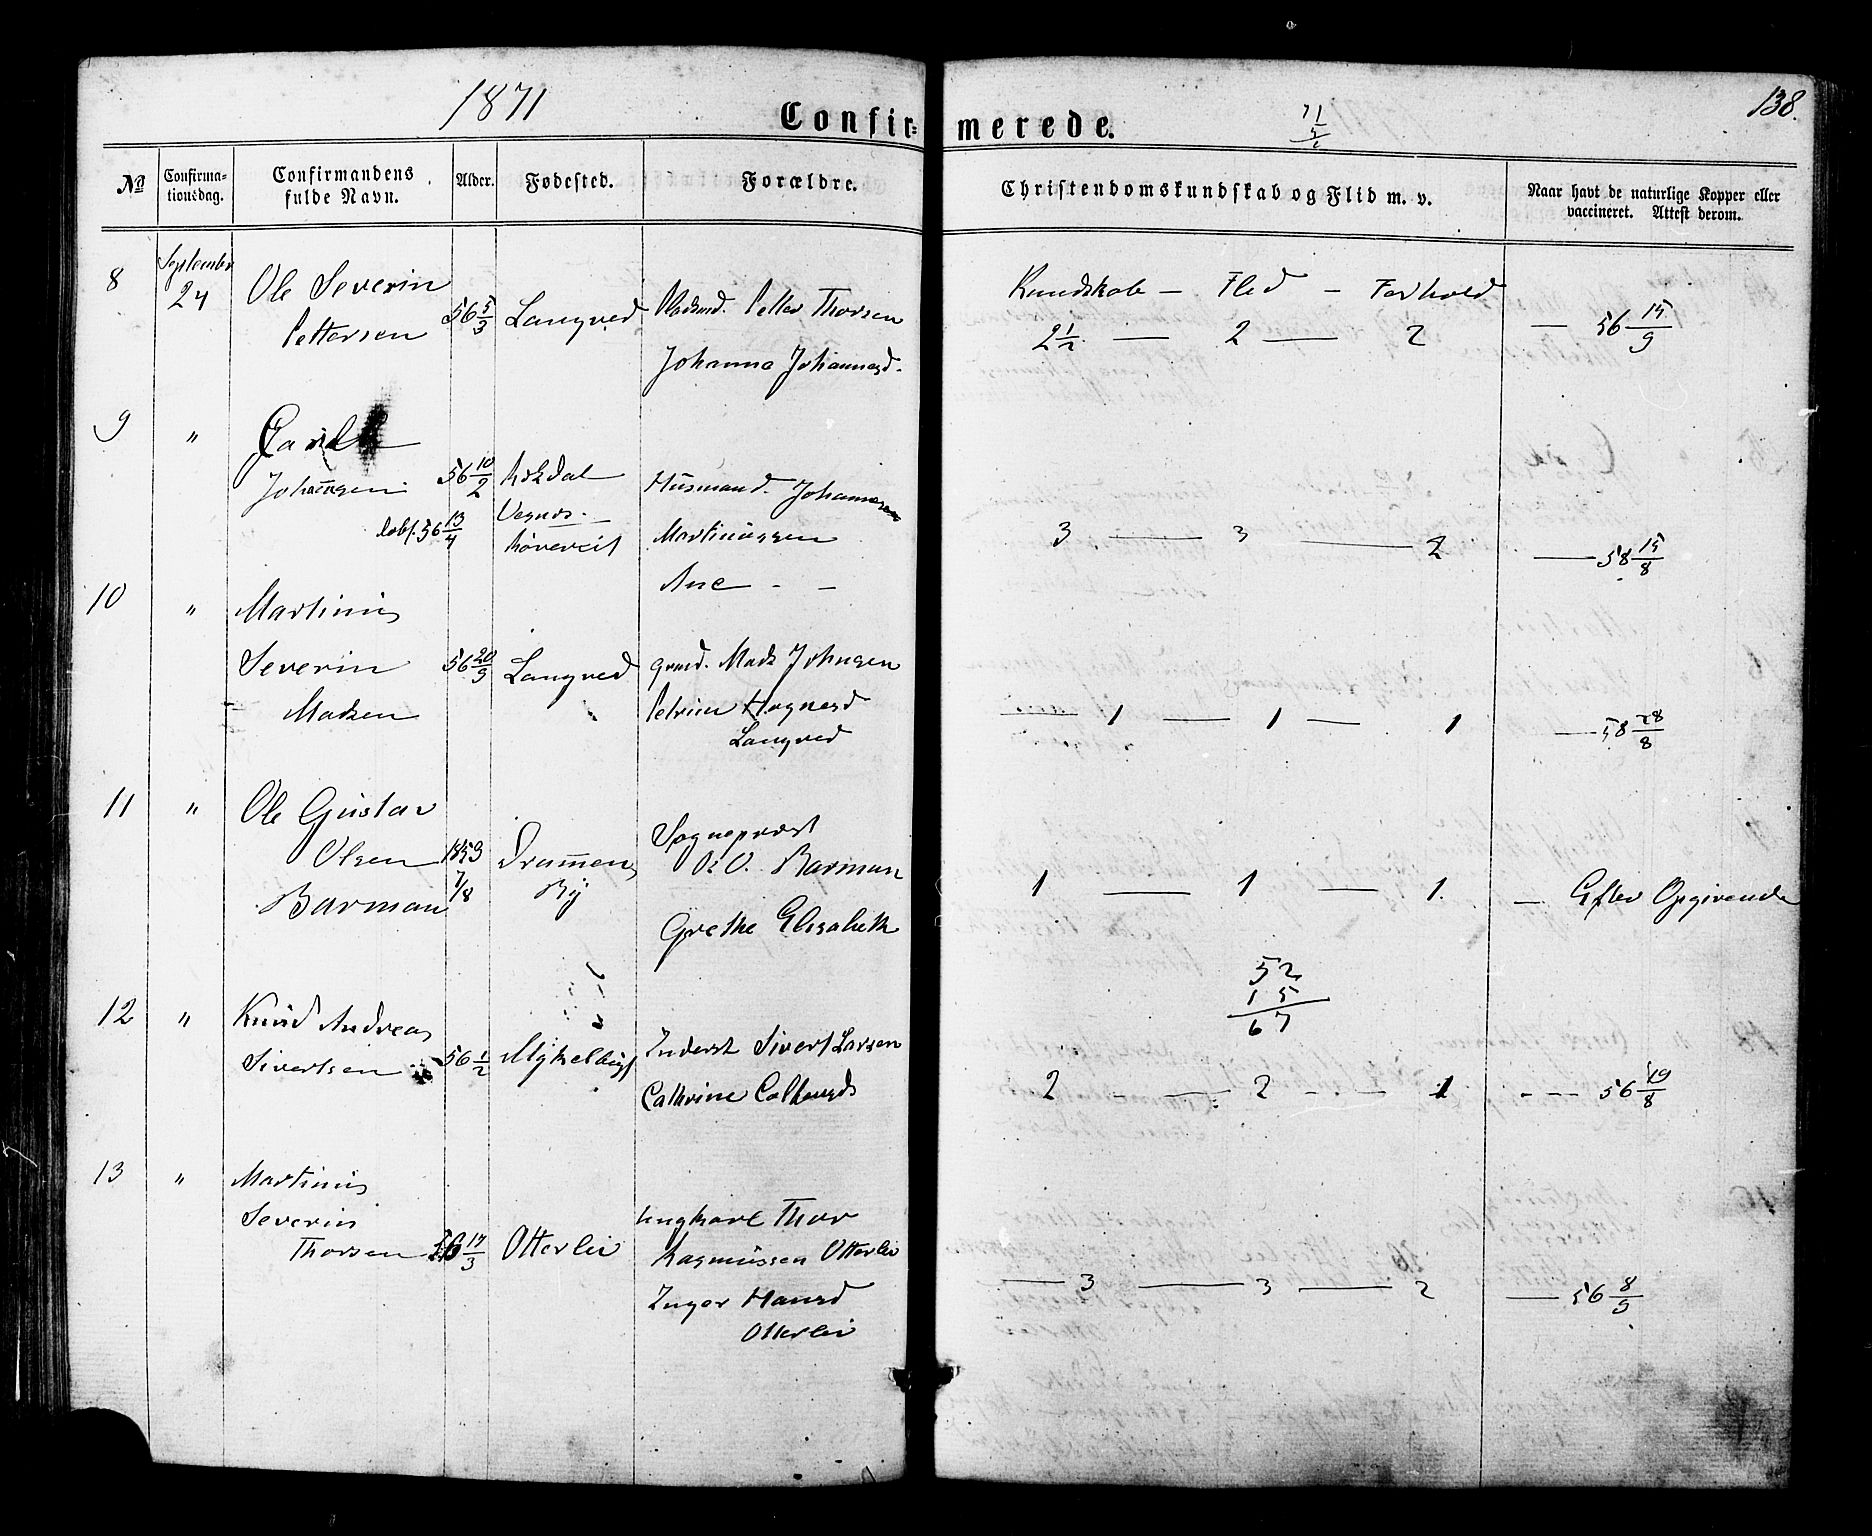 1871
Confir-
merede.
71
138.
No
Confirma-
tionsdag.
Confirmandens
fulde Navn.
Alder.
Fødested.
Forældre.
Christendomskundskab og Flid m. v.
Naar havt de naturlige Kopper eller
vaccineret. Attest derom.
8 September 24 Ole Severin
Pettersen 56 5/3 Langved Pladsmd. Petter Thorsen
Johanna Johannesd.
Kundskab - Flid - Forhold
2 1/2 — 2 — 2 — 56 15/9
9 " Carl
Johansen 56 10/2 Husmand. Johannes
døbt. 56 13/4 Martinussen
Ane - -
3 — 3 — 2 — 58 15/8
10 " Martinus
Severin 56 20/9 Langved grmd. Mads Johnsen
Madsen Petrine Hagnesd
Langved
— 1 — 1 — 1 — 58 28/8
11 " Ole Gustav
Olsen 1853 Drammens Sogneprest
Barman 7/8 By O. O. Barman
Grethe Elisabeth
1 — 1 — 1. — Efter Opgivende
52
15
67
12 " Knud Andreas
Sivertsen 56 1/2 Myhelbust Inderst Sivert Larsen
Cathrine
2 - — 2 - - — 1 - — 56 19/8
13 " Martinus
Severin
Thorsen 56 14/3 Otterlei Ungkarl Thor
Rasmussen Otterlei
Inger Hansd
Otterlei
— 3 — 3 — 2 — 56 8/9